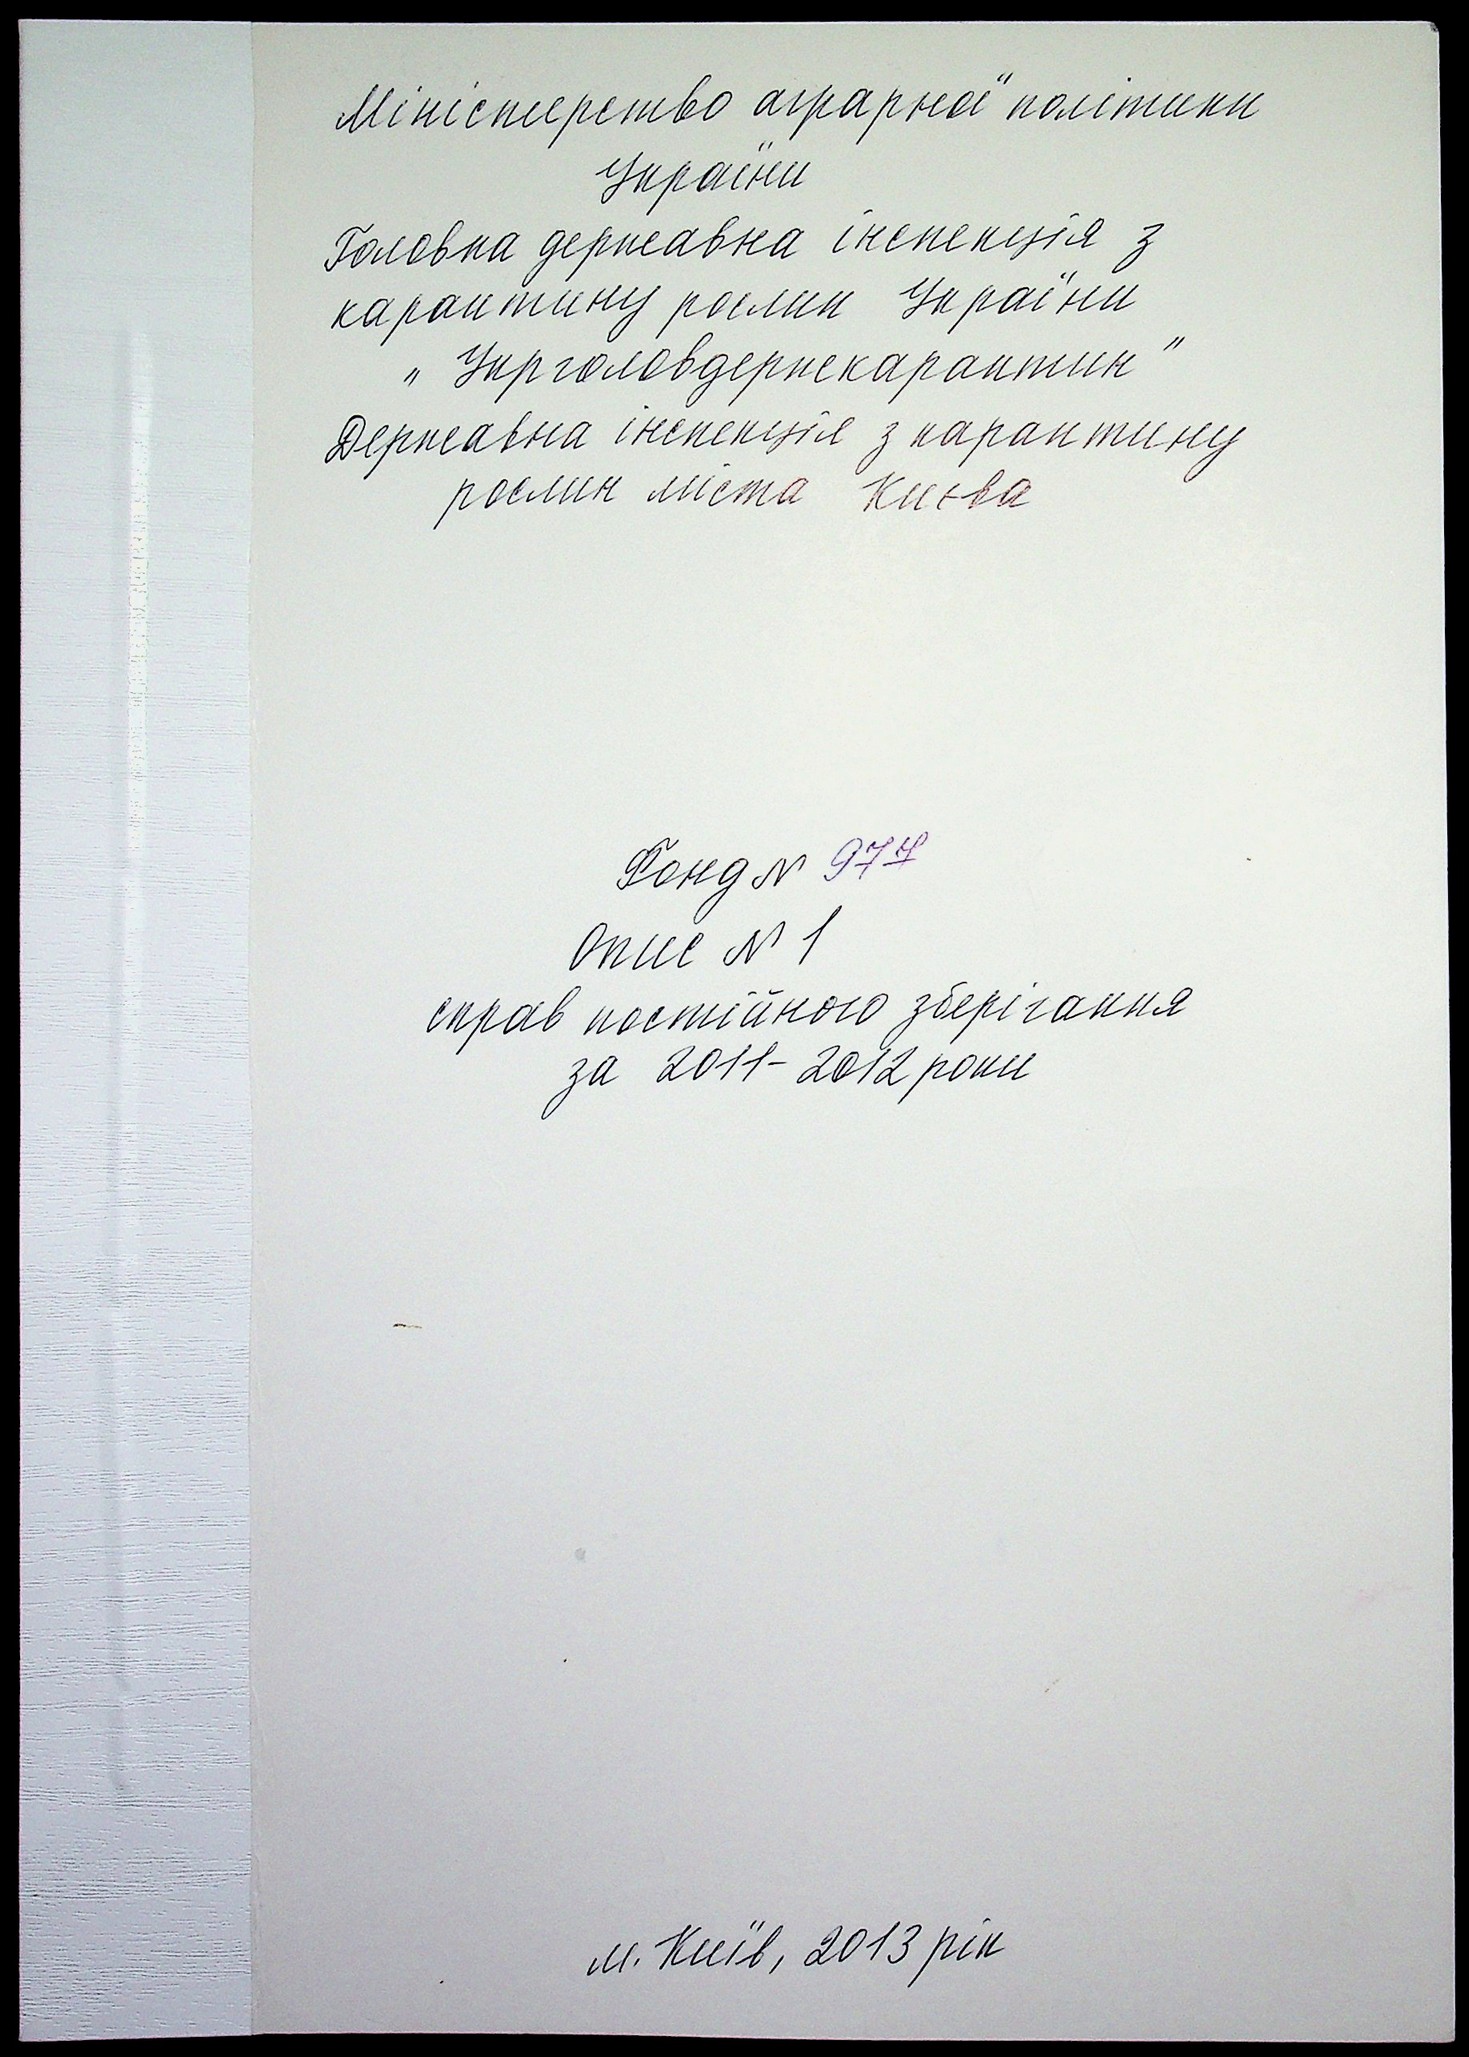 Міністерство аграрної політики
України
Головна державна інспекція з
карантину рослин України
„ Укрголовдержкарантин ”
Державна інспекція з карантину
рослин міста Києва
Фонд № 974
Опис № 1
справ постійного зберігання
за 2011-2012 роки
м. Київ, 2013 рік